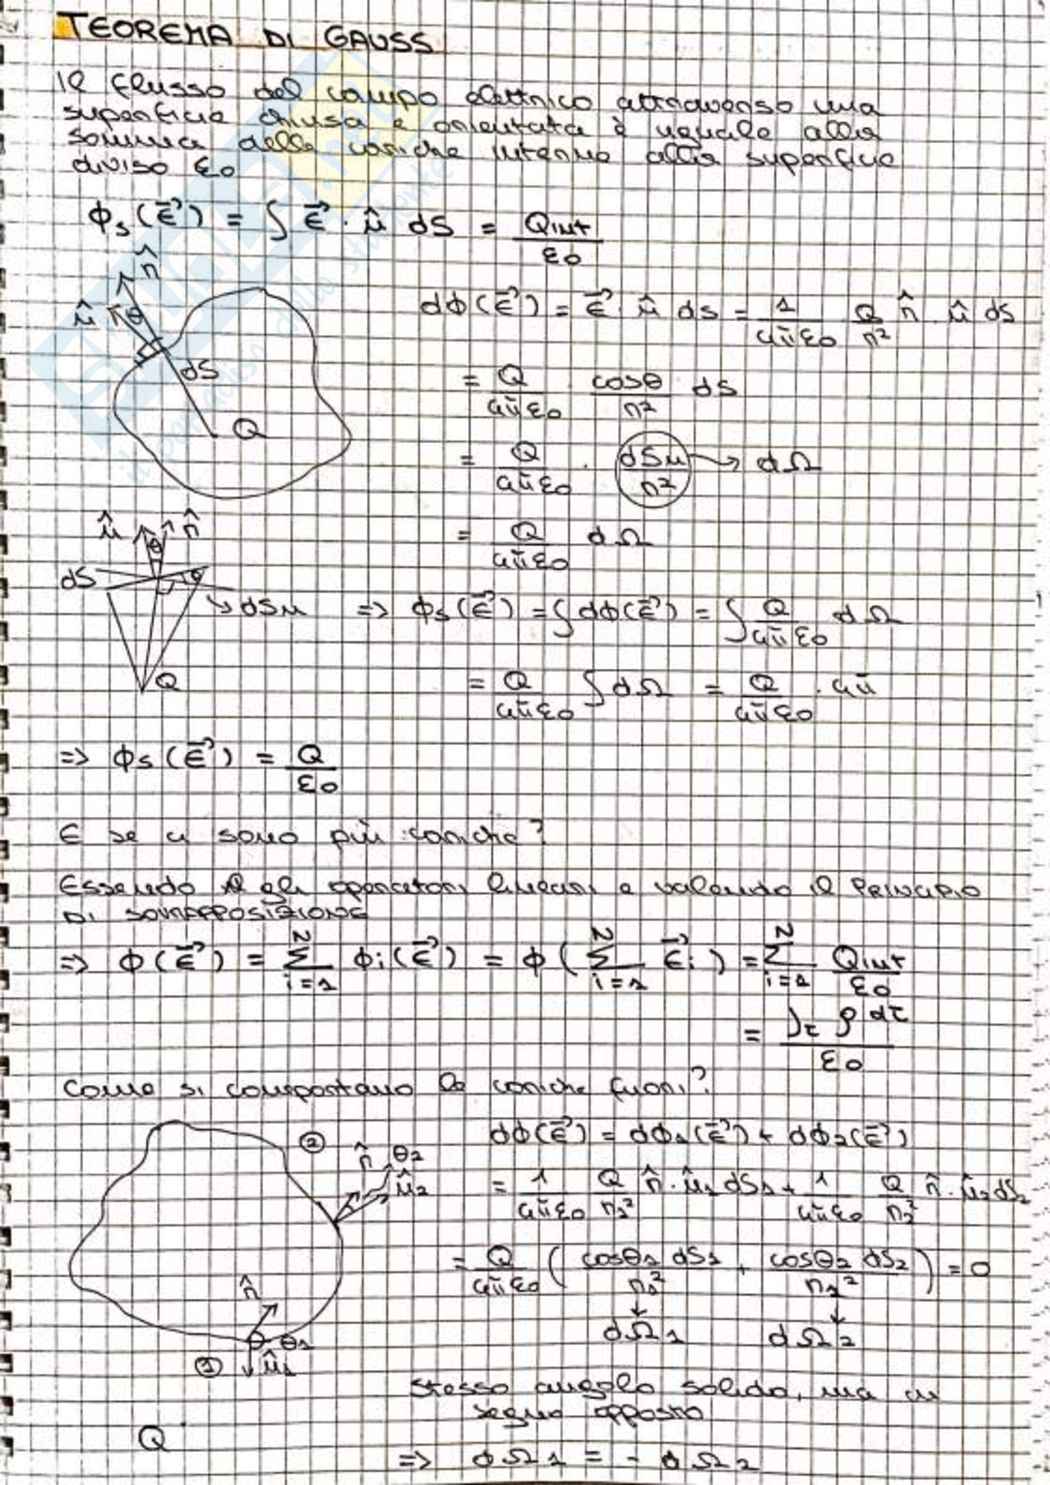 TEOREMA DI GAUSS
Il flusso del campo elettrico attraverso una
superficie chiusa e orientata è uguale alla
somma delle cariche interne alla superficie
diviso ε0
ϕs(E⃗) = ∫ E⃗ · û dS = Qint/ε0
r̂
û θ
dS
Q
dϕ(E⃗) = E⃗ · û dS = 1/(4πε0) Q/r² r̂ · û dS
= Q/(4πε0) cosθ/r² dS
= Q/(4πε0) · dSu/r² → dΩ
= Q/(4πε0) dΩ
û r̂
θ
dS θ
dSu
Q
=> ϕs(E⃗) = ∫dϕ(E⃗) = ∫ Q/(4πε0) dΩ
= Q/(4πε0) ∫dΩ = Q/(4πε0) · 4π
=> ϕs(E⃗) = Q/ε0
E se ci sono più cariche?
Essendo gli operatori lineari e valendo il PRINCIPIO
DI SOVRAPPOSIZIONE
=> ϕ(E⃗) = Σ_{i=1}^{N} ϕi(E⃗) = ϕ(Σ_{i=1}^{N} E⃗i) = Σ_{i=1}^{N} Qint/ε0
= ∫τ ρ dτ/ε0
Come si comportano le cariche fuori?
②
r̂ θ2
û2
r̂
θ1
① û1
Q
dϕ(E⃗) = dϕ1(E⃗) + dϕ2(E⃗)
= 1/(4πε0) Q/r1² r̂ · û1 dS1 + 1/(4πε0) Q/r2² r̂ · û2 dS2
= Q/(4πε0) (cosθ1 dS1/r1² + cosθ2 dS2/r2²) = 0
↓ ↓
dΩ1 dΩ2
stesso angolo solido, ma di
segno opposto
=> dΩ1 = - dΩ2